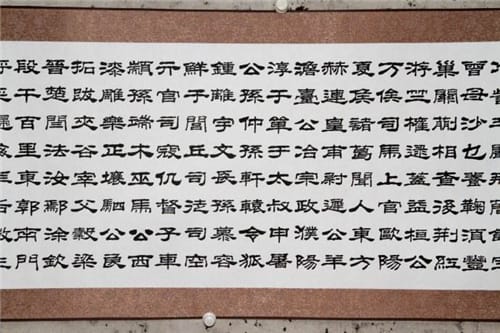 曾母沙乜養鞠須豐
巢關蒯相查後荆紅
游竺權逯蓋益桓公
万俟司馬上官歐陽
夏侯諸葛聞人東方
赫連皇甫尉遲公羊
澹臺公冶宗政濮陽
淳于單于太叔申屠
公孫仲孫軒轅令狐
鍾離宇文長孫慕容
鮮于閭丘司徒司空
亓官司寇仉督子車
顓孫端木巫馬公西
漆雕樂正壤駟公良
拓跋夾谷宰父穀梁
晉楚閆法汝鄢涂欽
段干百里東郭南門